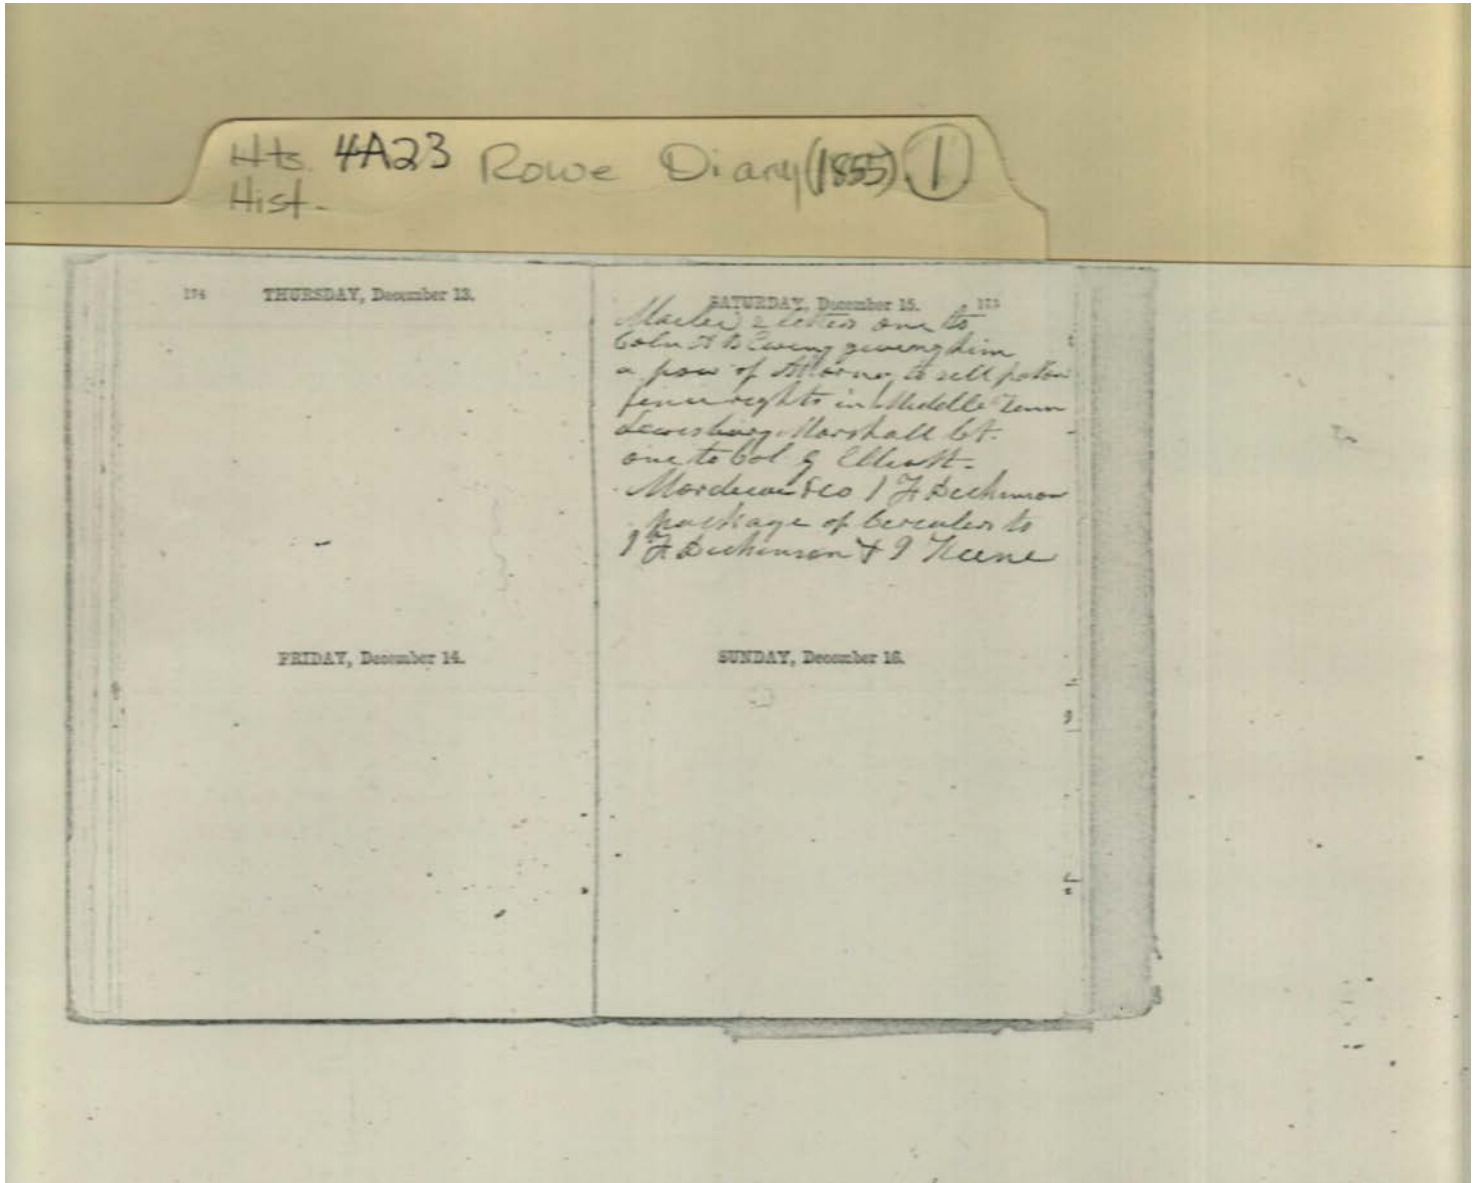 Hts. 4A23 Rowe Diary (1855) 1
Hist.
174 THURSDAY, December 13.
FRIDAY, December 14.
SATURDAY, December 15. 175
Mailed 2 letters one to
Coln A B Ewing giveing him
a pow of Attorney to sell
fence rights in Middle Tenn
Lewisburg Marshall Ct.
one to Col G Elliott -
& Co J F Dickinson
package of to
J F Dickinson & J Keene
SUNDAY, December 16.